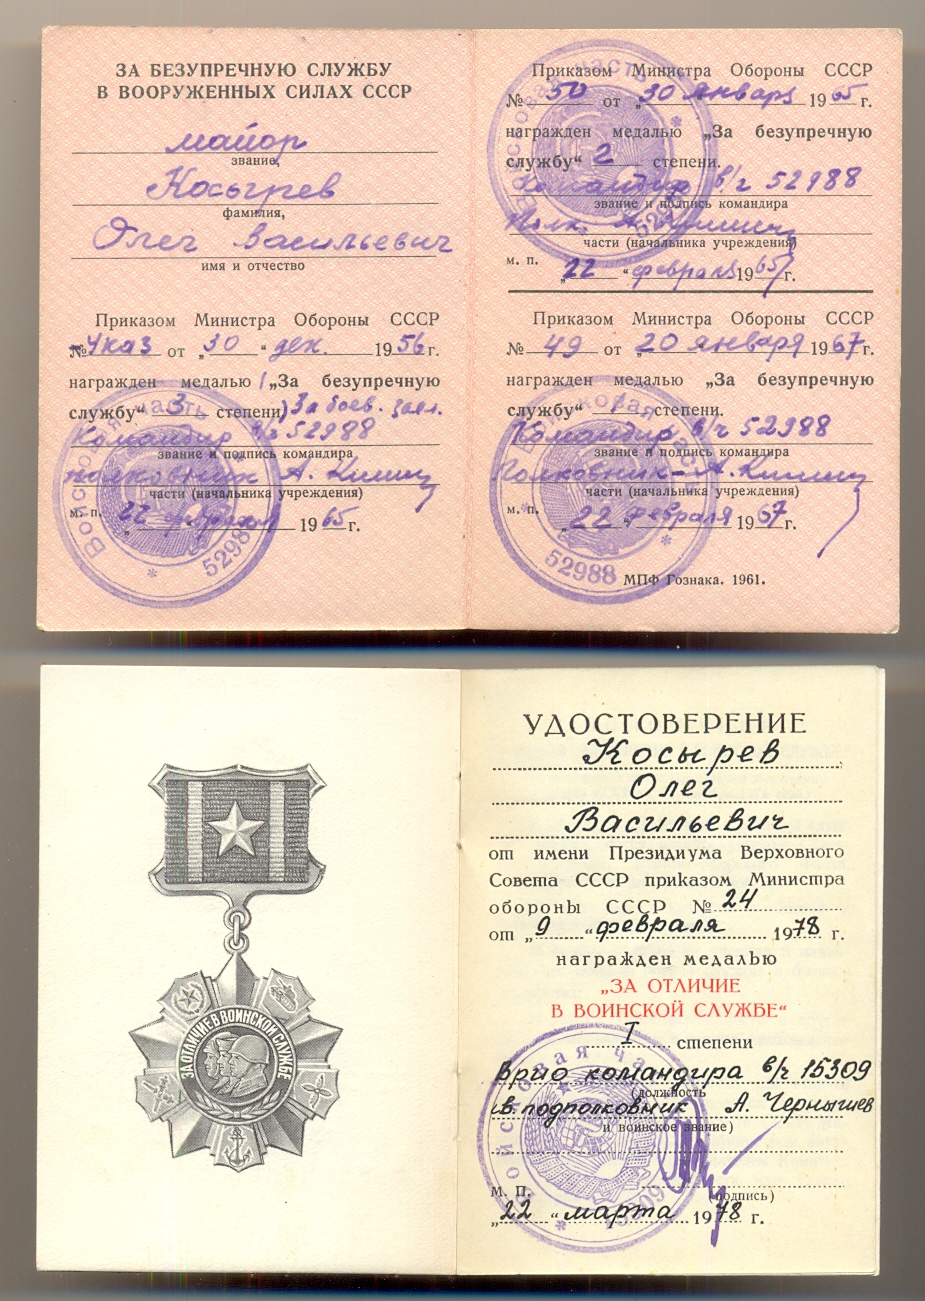 ЗА БЕЗУПРЕЧНУЮ СЛУЖБУ
В ВООРУЖЕННЫХ СИЛАХ СССР
майор
звание,
Косырев
фамилия,
Олег Васильевич
имя и отчество
Приказом Министра Обороны СССР
№ Указ от „30“ дек. 1956 г.
награжден медалью („За безупречную
службу“ 3 степени) За боев. засл.
Командир в/ч 52988
звание и подпись командира
полковник А.
части (начальника учреждения)
м. п. „22“ февраля 1965 г.
Войсковая часть * 52988
Приказом Министра Обороны СССР
№ 50 от „30 января 1965 г.
награжден медалью „За безупречную
службу“ 2 степени.
Командир в/ч 52988
звание и подпись командира
Полк. А.
части (начальника учреждения)
м. п. „22“ февраля 1965 г.
Войсковая часть * 52988
Приказом Министра Обороны СССР
№ 49 от „20 января 1967 г.
награжден медалью „За безупречную
службу“ 1 степени.
Командир в/ч 52988
звание и подпись командира
Полковник А.
части (начальника учреждения)
м. п. „22“ февраля 1967 г.
Войсковая часть * 52988
МПФ Гознака. 1961.
ЗА ОТЛИЧИЕ В ВОИНСКОЙ СЛУЖБЕ
УДОСТОВЕРЕНИЕ
Косырев
Олег
Васильевич
от имени Президиума Верховного
Совета СССР приказом Министра
обороны СССР № 24
от „9“ февраля 1978 г.
награжден медалью
„ЗА ОТЛИЧИЕ
В ВОИНСКОЙ СЛУЖБЕ“
I степени
Врио командира в/ч 15309
(должность
подполковник А. Чернышев
и воинское звание)
(подпись)
М. П.
„22“ марта 1978 г.
Войсковая часть * 15309